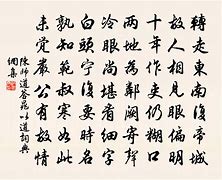 轉走東南復帝城
故人相見眼偏明
十年作吏仍餬口
兩地為鄰闕寄聲
冷眼尚堪看細字
白頭寧復要時名
孰知范叔寒如此
未覺嚴公有故情
陳師道答晁以道詞典
網集